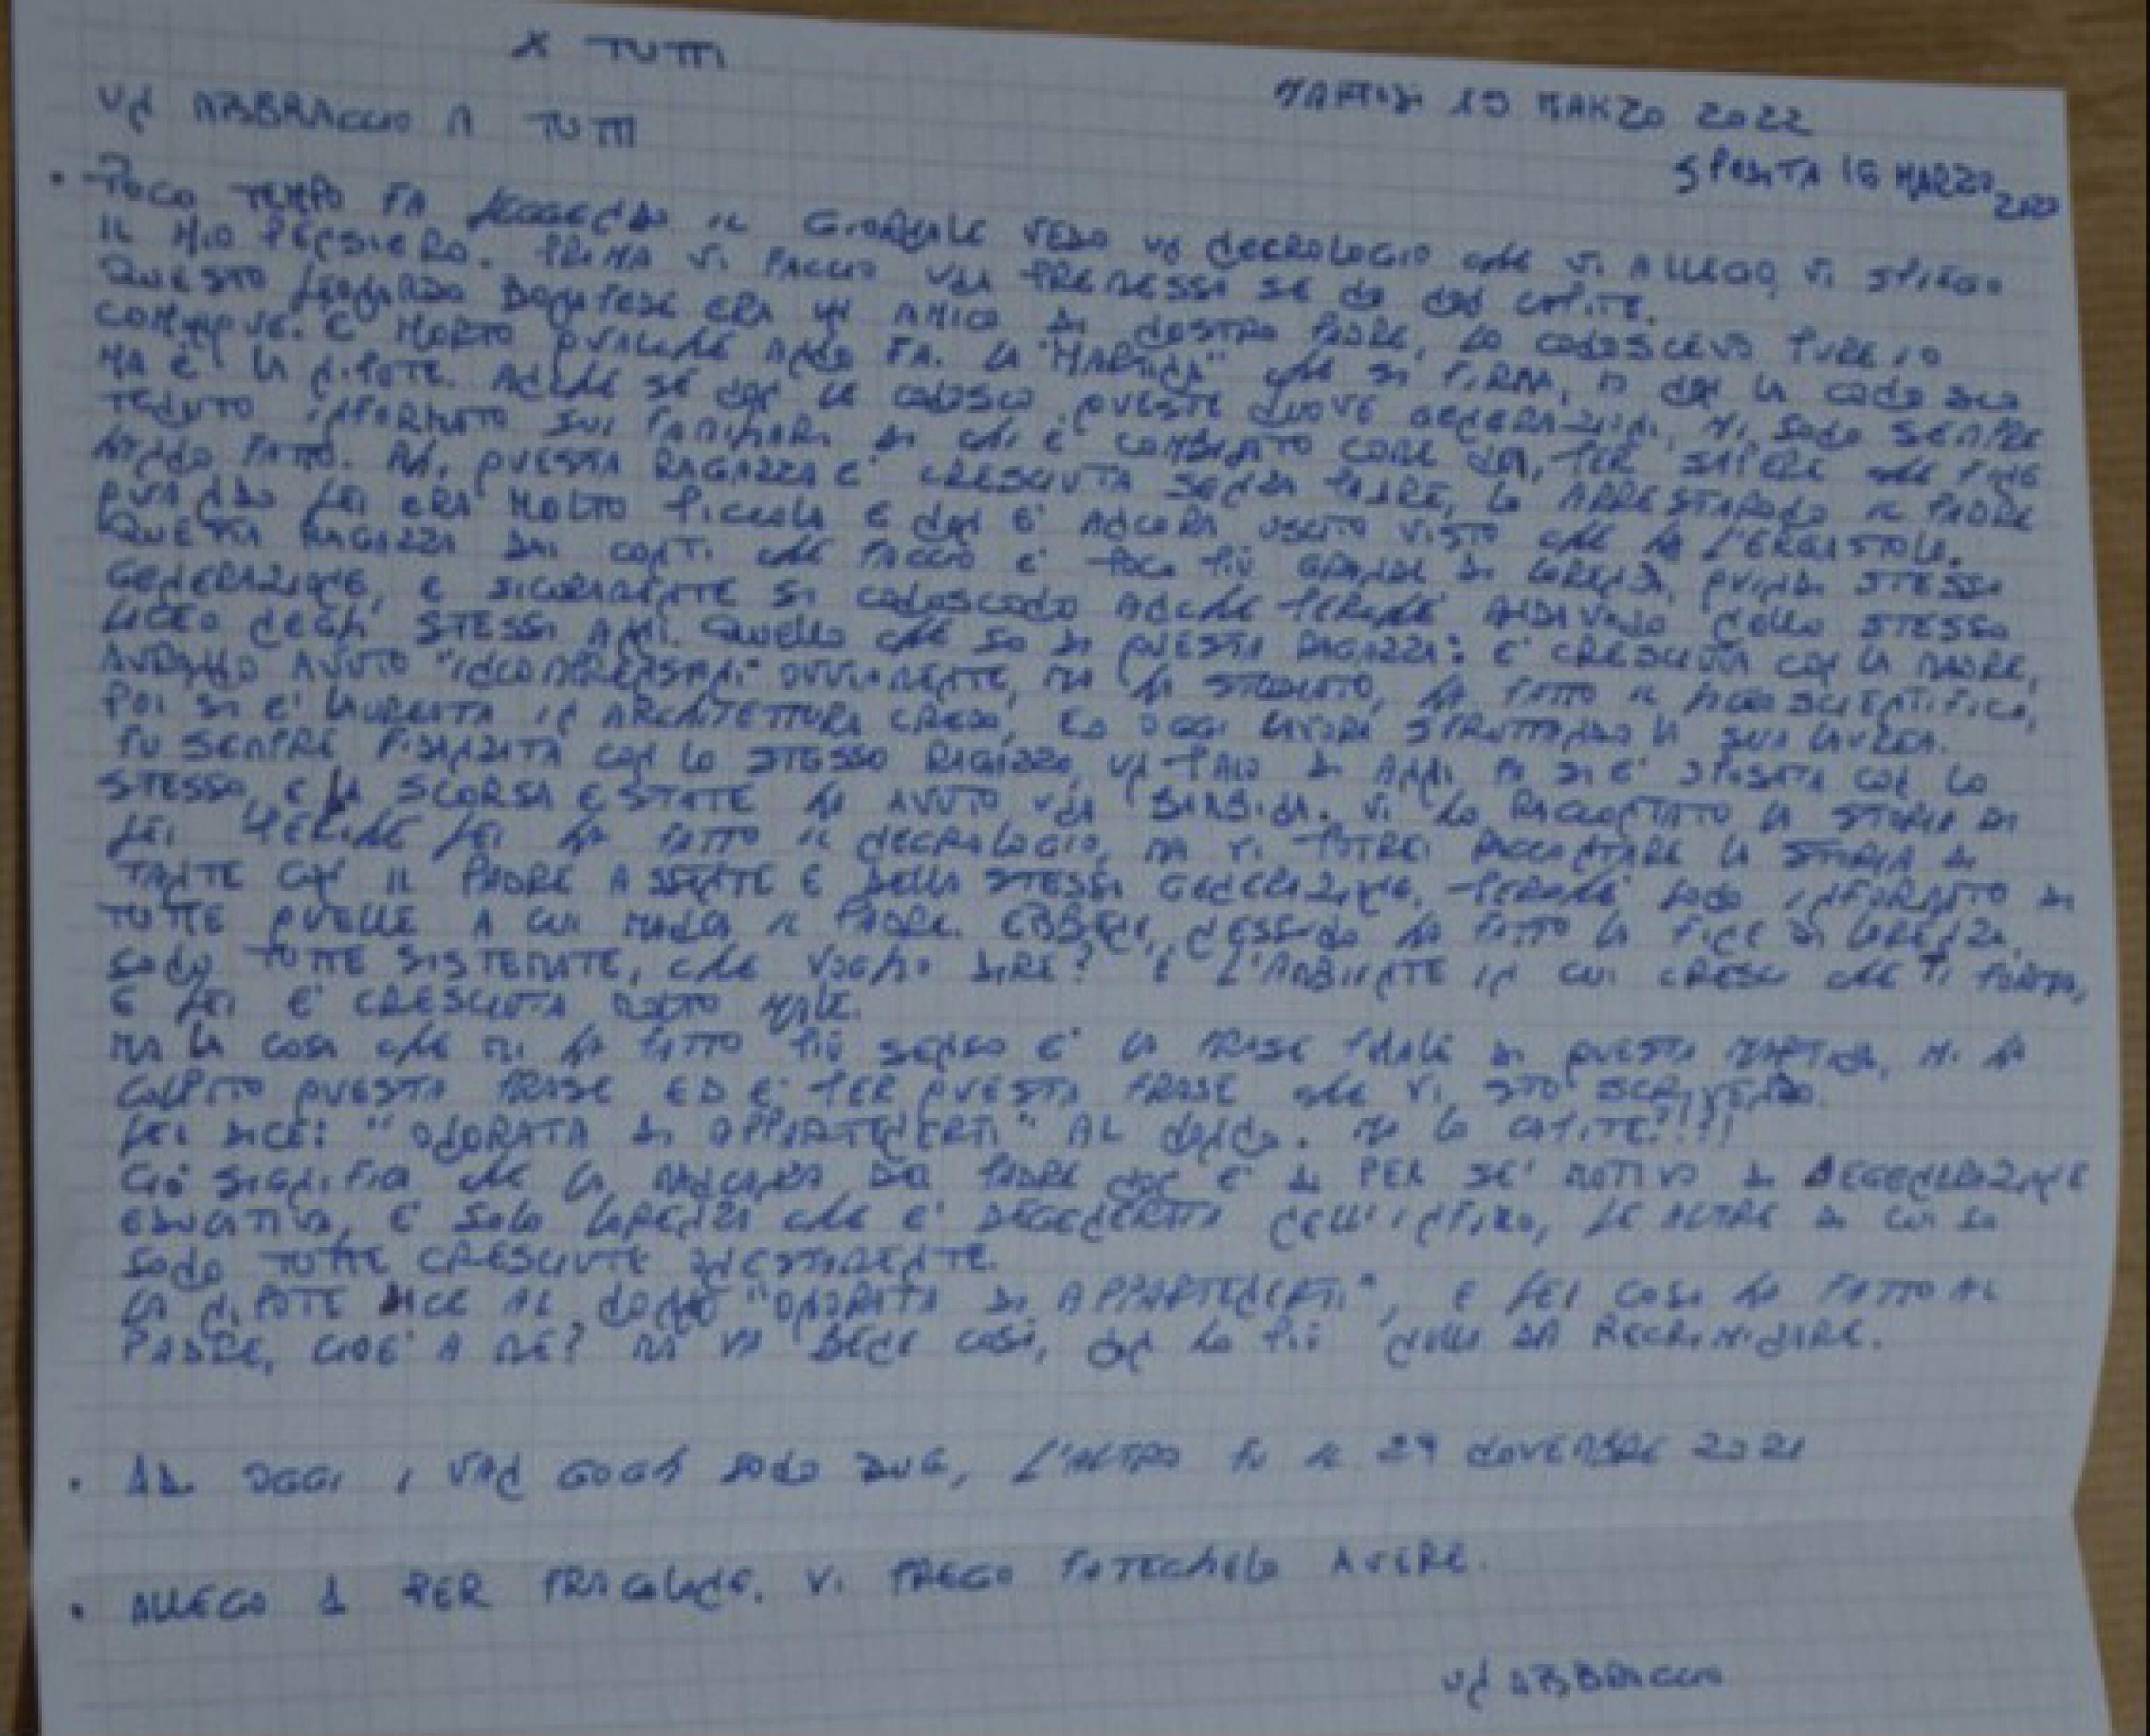 X TUTTI
MARTEDI 15 MARZO 2022
UN ABBRACCIO A TUTTI
SPEDITA 16 MARZO 2022
• POCO TEMPO FA LEGGENDO IL GIORNALE VEDO UN NECROLOGIO CHE VI ALLEGO, VI SPIEGO
IL MIO PENSIERO. PRIMA VI FACCIO UNA PREMESSA SE NO NON CAPITE.
QUESTO LEONARDO BONAFEDE ERA UN AMICO DI NOSTRO PADRE, LO CONOSCEVO PURE IO
COMUNQUE. E' MORTO QUALCHE ANNO FA. LA "MARTINA" CHE SI FIRMA, IO NON LA CONOSCO
MA E' LA NIPOTE. ANCHE SE NON LE CONOSCO QUESTE NUOVE GENERAZIONI, MI SONO SEMPRE
TENUTO INFORMATO SUI FAMILIARI DI CHI E' COMBINATO COME NOI, PER SAPERE CHE FINE
HANNO FATTO. QUESTA RAGAZZA E' CRESCIUTA SENZA PADRE, LO ARRESTARONO IL PADRE
QUANDO LEI ERA MOLTO PICCOLA E NON E' ANCORA USCITO VISTO CHE HA L'ERGASTOLO.
QUESTA RAGAZZA DAI CONTI CHE FACCIO E' POCO PIÙ GRANDE DI LORENZA, QUINDI STESSA
GENERAZIONE, E SICURAMENTE SI CONOSCONO ANCHE PERCHE' ANDAVANO NELLO STESSO
LICEO NEGLI STESSI ANNI. QUELLO CHE SO DI QUESTA RAGAZZA: E' CRESCIUTA CON LA MADRE,
AVRANNO AVUTO "INCOMPRENSIONI" OVVIAMENTE, MA HA STUDIATO, HA FATTO IL LICEO SCIENTIFICO,
POI SI E' LAUREATA IN ARCHITETTURA CREDO, ED OGGI LAVORA SFRUTTANDO LA SUA LAUREA.
FU SEMPRE FIDANZATA CON LO STESSO RAGAZZO, UN PAIO DI ANNI FA SI E' SPOSATA CON LO
STESSO, E LA SCORSA ESTATE HA AVUTO UNA BAMBINA. VI HO RACCONTATO LA STORIA DI
LEI PERCHE LEI HA FATTO IL NECROLOGIO, MA VI POTREI RACCONTARE LA STORIA DI
TANTE CON IL PADRE ASSENTE E DELLA STESSA GENERAZIONE. PERCHE' SONO INFORMATO DI
TUTTE QUELLE A CUI MANCA IL PADRE. EBBENE, NESSUNO HA FATTO LA FINE DI LORENZA,
SONO TUTTE SISTEMATE, CHE VOGLIO DIRE? E' L'AMBIENTE IN CUI CRESCI CHE TI FORMA,
E LEI E' CRESCIUTA MOLTO MALE.
MA LA COSA CHE MI HA FATTO PIÙ SENSO E' LA FRASE FINALE DI QUESTA MARTINA, MI HA
COLPITO QUESTA FRASE ED E' PER QUESTA FRASE CHE VI STO SCRIVENDO.
LEI DICE: "ONORATA DI APPARTENERTI" AL NONNO. MA LO CAPITE?!!!
CIÒ SIGNIFICA CHE LA MANCANZA DEL PADRE NON E' DI PER SE' MOTIVO DI DEGENERAZIONE
EDUCATIVA, E' SOLO LORENZA CHE E' DEGENERATA NELL'INFIMO, LE ALTRE DI CUI SO
SONO TUTTE CRESCIUTE ONESTAMENTE.
LA NIPOTE DICE AL NONNO "ONORATA DI APPARTENERTI", E LEI COSA HA FATTO AL
PADRE, CIOE' A ME? MA VA BENE COSÌ, NON HO PIÙ NULLA DA RECRIMINARE.
• AD OGGI I VAN GOGH SONO DUE, L'ALTRO FU IL 29 NOVEMBRE 2021
• ALLEGO 1 PER FRAGOLONE. VI PREGO FATECHELO AVERE.
UN ABBRACCIO